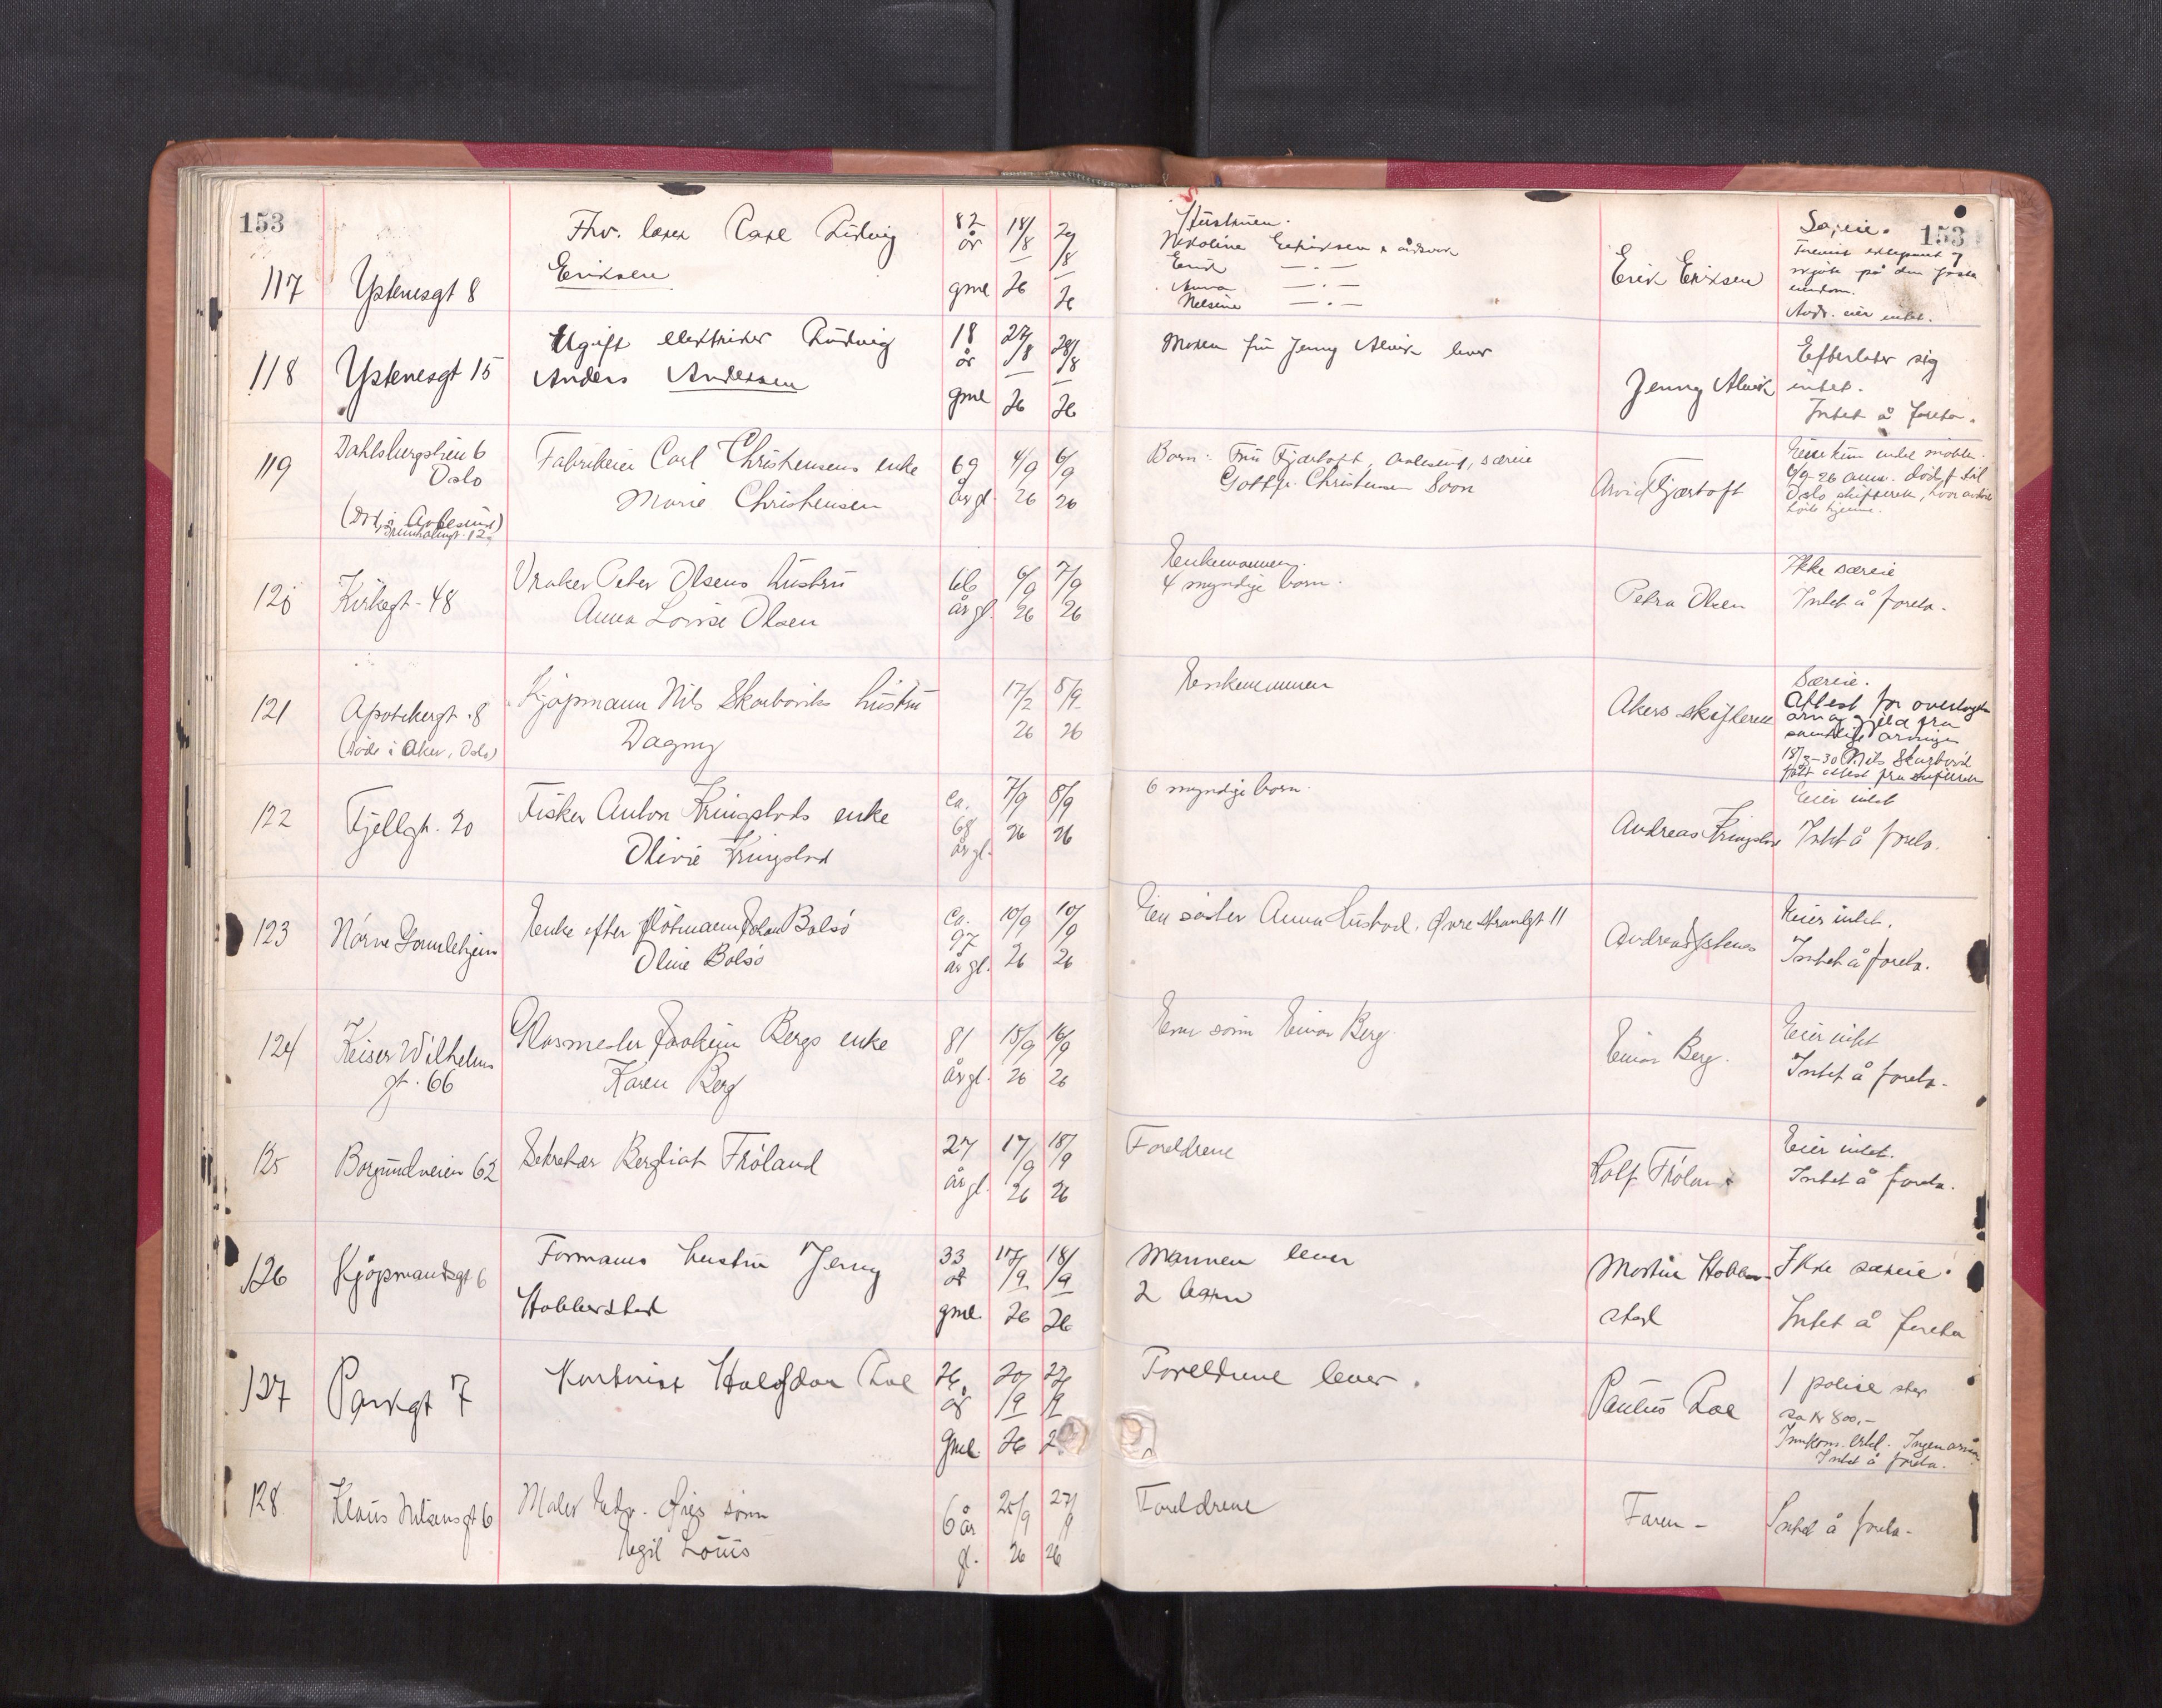 153
117
Ystenesgt 8
Fhv. lærer Carl Ludvig
Eriksen
82 år gml
18/8 26
20/8 26
Hustruen.
Nikoline Eriksen
Erik — . —
Anna — . —
Nelsine — . —
Erik Eriksen
Særeie.
153
skjøte på den faste
eiendom.
Avdr. eier intet.
118
Ystenesgt 15
Ugift elektriker Ludvig
Anders Andersen
18 år gml
27/8 26
28/8 26
Moren fru Jenny Alvik lever
Jenny Alvik
Efterlater sig
intet.
Intet å foreta.
119
Dahlsbergstien 6
Oslo
(Død i Aalesund)
Fabrikeier Carl Christensens enke
Marie Christensen
69 år gl.
4/9 26
6/9 26
Barn: Fru Fjærtoft, Aalesund, særeie
Gottfr. Christensen Soon
Arvid Fjærtoft
Eier kun endel møbler.
6/9-26 anm. dødsf. til
Oslo skifterett, hvor avdøde
hørte hjemme.
120
Kirkegt. 48
Vraker Peter Olsens hustru
Anna Lovise Olsen
66 år gl.
6/9 26
7/9 26
Enkemannen.
4 myndige barn.
Petra Olsen
Ikke særeie
Intet å foreta.
121
Apotekergt. 8
(Døde i Aker, Oslo)
Kjøpmann Nils Skarbøviks hustru
Dagny
17/2 26
8/9 26
Enkemannen
Akers skifterett
Særeie.
Attest for overtagelse
arv og gjeld fra
samtlige arvinger
18/3-30 Nils Skarbøvik
fått attest fra skifteretten
122
Fjellgt. 20
Fisker Anton Kringstads enke
Olivie Kringstad
ca. 68 år gl.
7/9 26
8/9 26
6 myndige barn.
Andreas Kringstad
Eier intet
Intet å foreta.
123
Nørve Gamlehjem
Enke efter Fløtmann Johan Bolsø
Oline Bolsø
ca. 97 år gl.
10/9 26
10/9 26
En søster Anna Hustad, Øvre Strandgt 11
Andreas Ystenes
Eier intet.
Intet å foreta.
124
Keiser Wilhelms
gt. 66
Glasmester Joakim Bergs enke
Karen Berg
81 år gl.
15/9 26
16/9 26
En sønn Einar Berg.
Einar Berg.
Eier intet
Intet å foreta.
125
Borgundveien 62
Sekretær Bergliot Frøland
27 år gl.
17/9 26
18/9 26
Foreldrene
Rolf Frøland
Eier intet.
Intet å foreta.
126
Kjøpmandsgt 6
Formanns hustru Jenny
Hobberstad
33 år gml.
17/9 26
18/9 26
Mannen lever
2 barn
Martin Hobber-
stad
Ikke særeie.
Intet å foreta
127
Parkgt 7
Kontorist Halfdan Roe
26 år gml.
20/9 26
22/9 2
Foreldrene lever.
Paulus Roe
1 polise stor
ca kr 800,-
Intet å foreta.
128
Klaus Nilsensgt 6
Maler Edv. Gjøs sønn
Egil Louis
6 år gl.
25/9 26
27/9 26
Foreldrene
Faren -
Intet å foreta.